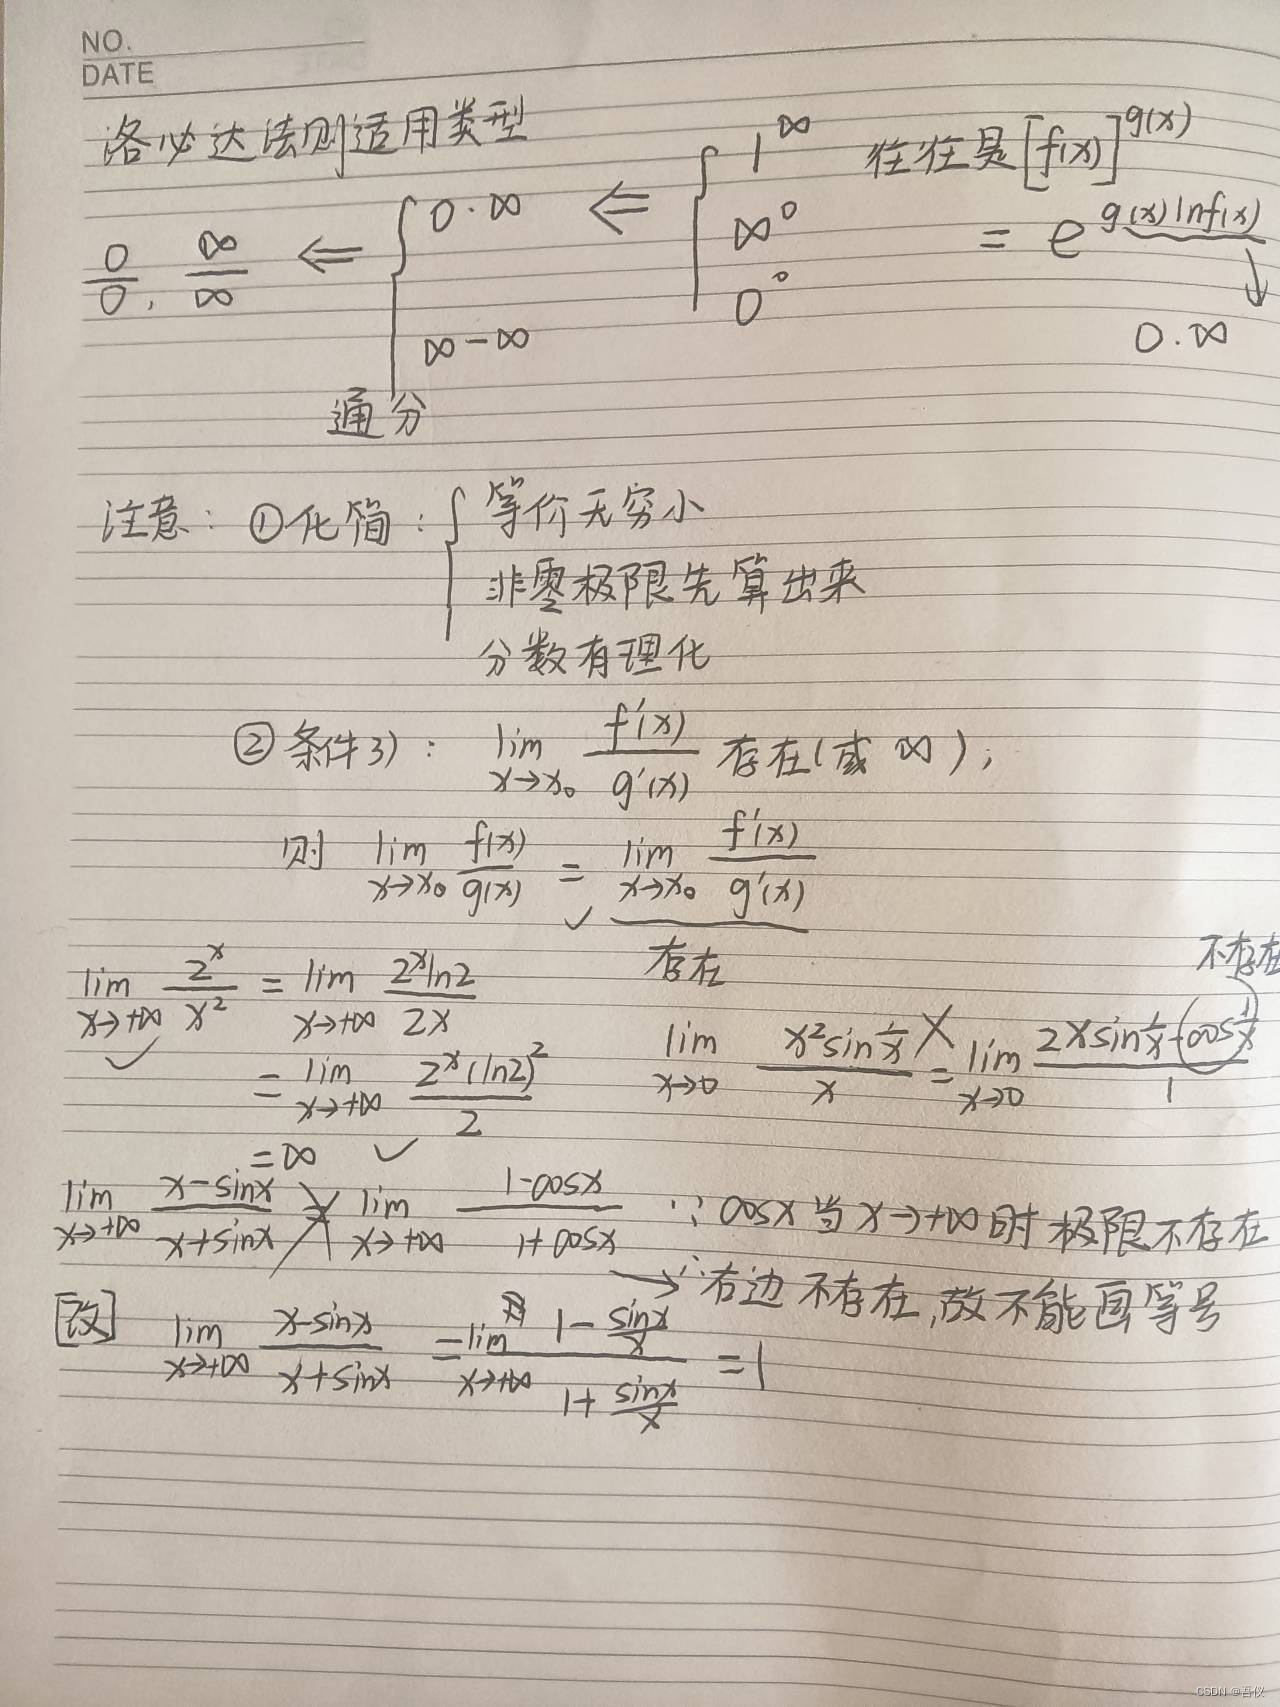 NO.
DATE
洛必达法则适用类型
0/0, ∞/∞ ⇐ { 0·∞ ⇐ { 1^∞ 往往是[f(x)]^g(x)
∞^0 = e^(g(x)lnf(x))
0^0 ↓
∞-∞ 0·∞
通分
注意: ①化简: { 等价无穷小
非零极限先算出来
分数有理化
②条件3): lim x→x₀ f'(x)/g'(x) 存在(或∞);
则 lim x→x₀ f(x)/g(x) = lim x→x₀ f'(x)/g'(x)
✓ 存在 不存在
lim x→+∞ 2^x/x² = lim x→+∞ 2^x ln2/2x
✓ lim x→0 x²sin(1/x)/x ╳= lim x→0 (2xsin(1/x)-cos(1/x))/1
= lim x→+∞ 2^x(ln2)²/2
=∞ ✓
lim x→+∞ (x-sinx)/(x+sinx) ╳= lim x→+∞ (1-cosx)/(1+cosx) ∵cosx当x→+∞时极限不存在
→∴右边不存在,故不能画等号
[改] lim x→+∞ (x-sinx)/(x+sinx) = lim x→+∞ (1-sinx/x)/(1+sinx/x) =1
CSDN @吾仪